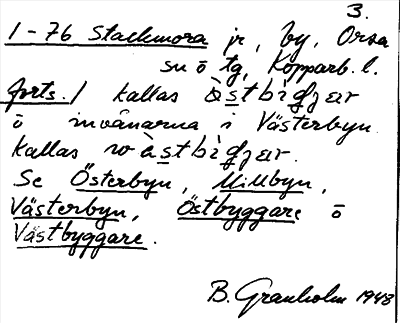 3.
1-76 Stackmora jr, by, Orsa
sn ö tg, Kopparb. l.
forts./ kallas
ö invånarna i Västerbyn
kallas
Se Österbyn, Millbyn,
Västerbyn, Östbyggare ö
Västbyggare.
B. Granholm 1948